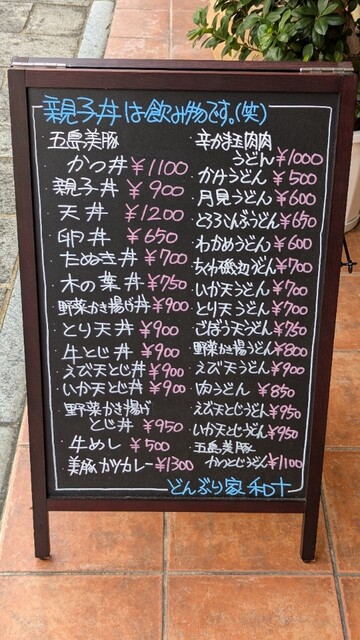 親子丼は飲み物です。(笑)
五島美豚
かつ丼 ¥1100
親子丼 ¥900
天丼 ¥1200
卵丼 ¥650
たぬき丼 ¥700
木の葉丼 ¥750
野菜かき揚げ丼 ¥900
とり天丼 ¥900
牛とじ丼 ¥900
えび天とじ丼 ¥900
いか天とじ丼 ¥900
野菜かき揚げ
とじ丼 ¥950
牛めし ¥500
美豚カツカレー ¥1300
辛かま玉肉肉
うどん ¥1000
かけうどん ¥500
月見うどん ¥600
とろろこんぶうどん ¥650
わかめうどん ¥600
ちくわ磯辺うどん ¥700
いか天うどん ¥700
とり天うどん ¥700
ごぼう天うどん ¥750
野菜かき揚うどん ¥800
えび天うどん ¥900
肉うどん ¥850
えび天とじうどん ¥950
いか天とじうどん ¥950
五島美豚
かつとじうどん ¥1100
どんぶり家 和十